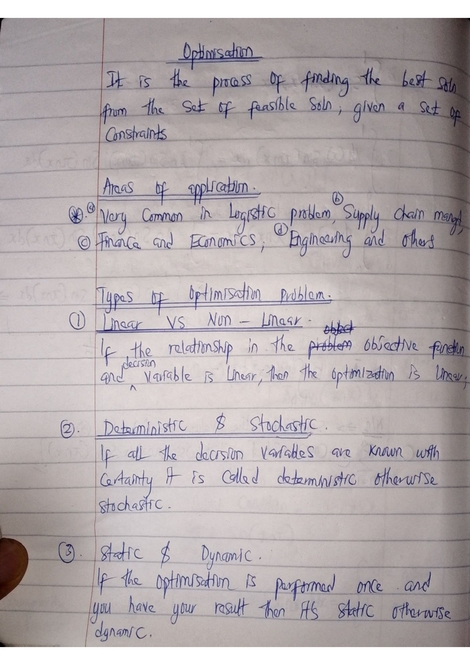 Optimisation
It is the process of finding the best soln
from the set of feasible soln, given a set of
Constraints
Areas of application.
(a) Very Common in Logistic problem, (b) Supply chain mangt,
(c) Finance and Economics, (d) Engineering and others
Types of Optimisation Problem.
(1) Linear vs Non - Linear.
If the relationship in the problem objective function
and decision variable is linear, then the optimization is linear,
(2). Deterministic & Stochastic.
If all the decision variables are known with
Certainty it is called deterministic otherwise
stochastic.
(3) Static & Dynamic.
If the optimisation is performed once and
you have your result then its static otherwise
dynamic.